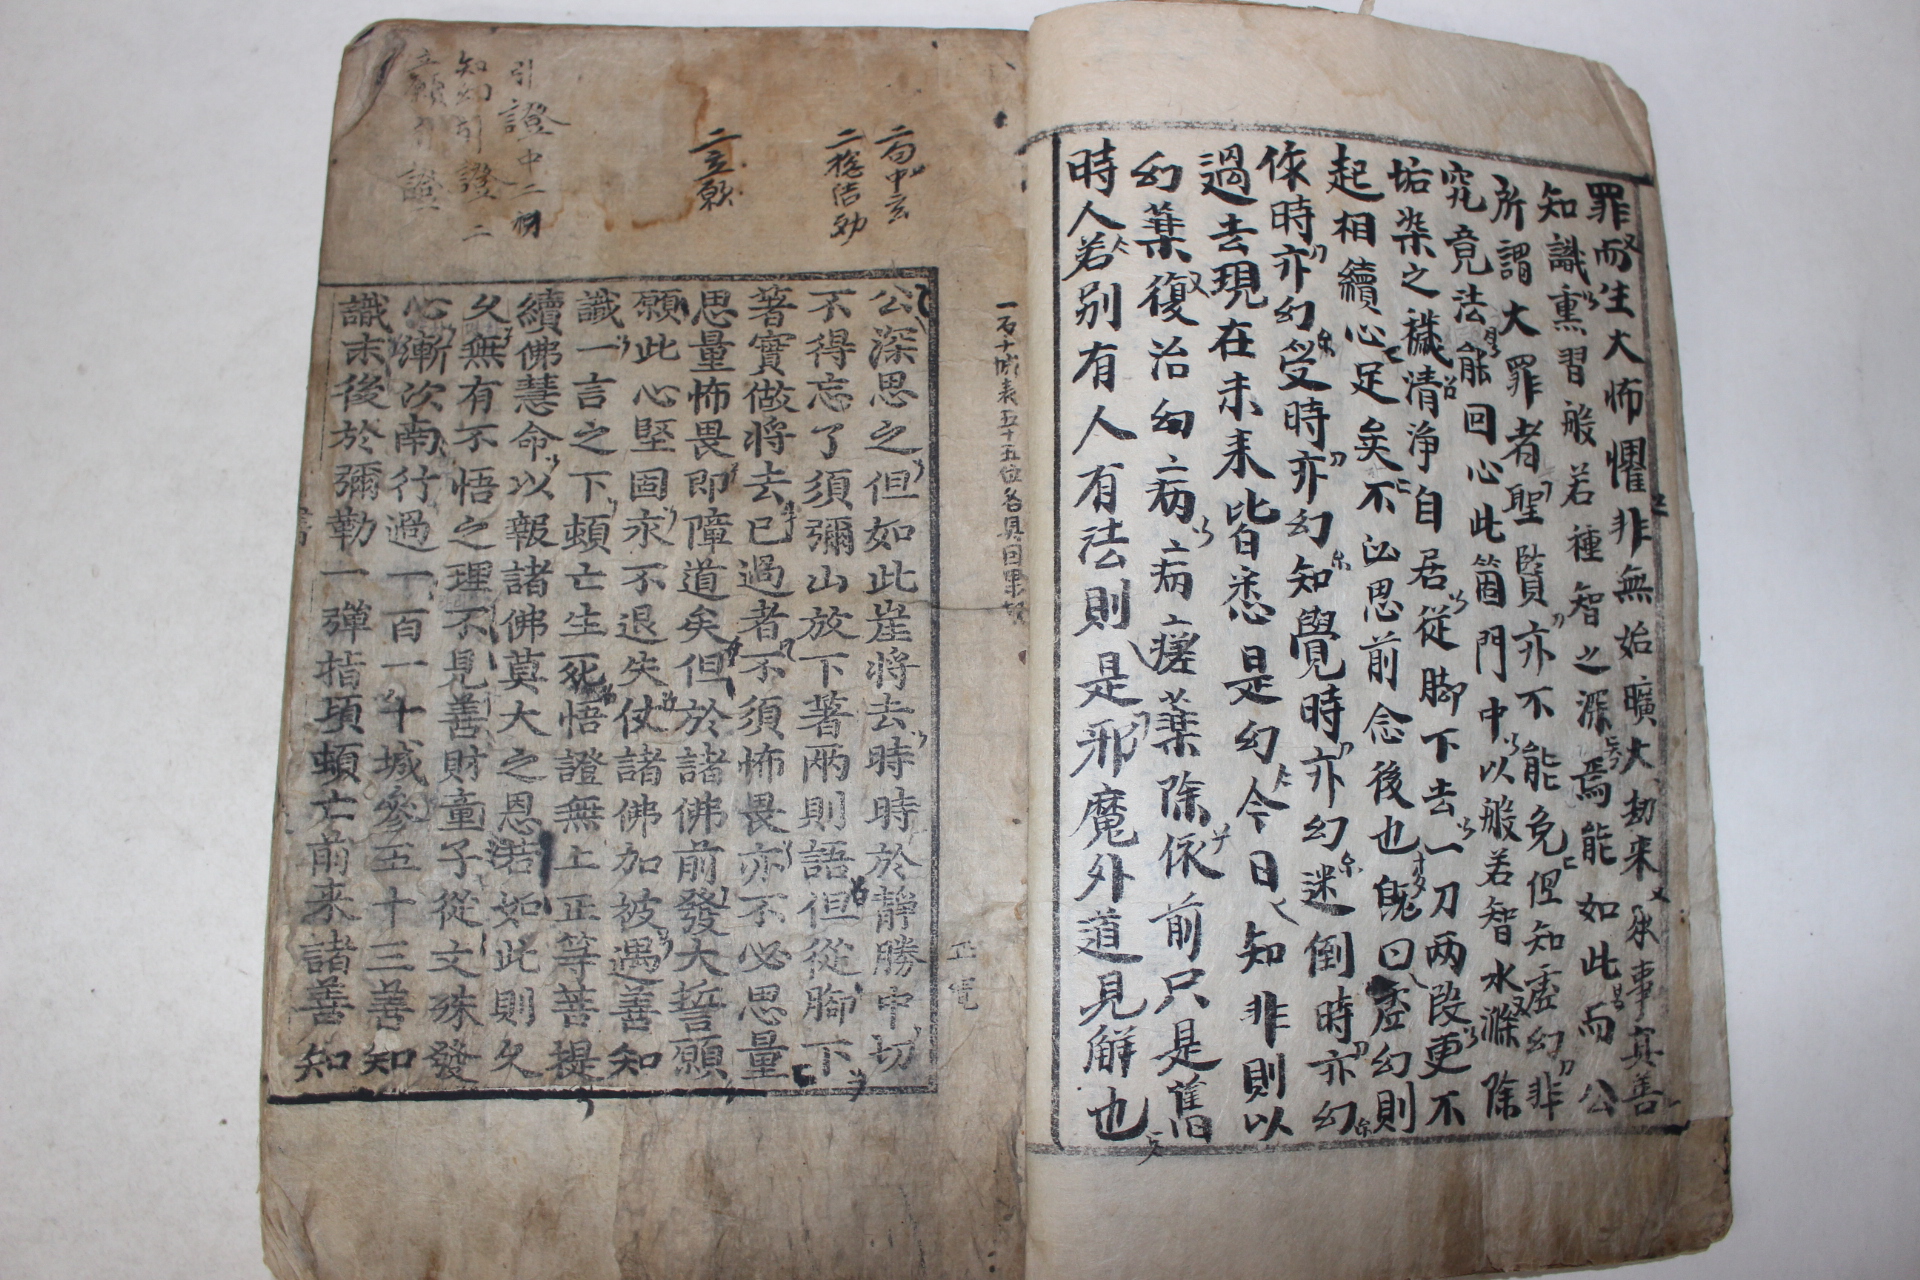 罪而生大怖懼非無始曠大劫来承事真善
知識熏習般若種智之深焉能如此而公
所謂大罪者聖賢亦不能免但知虛幻非
究竟法能回心此箇門中以般若智水滌除
垢染之穢清淨自居從脚下去一刀两段更不
起相續心足矣不必思前念後也旣曰虛幻則
作時亦幻受時亦幻知覺時亦幻迷倒時亦幻
過去現在未来皆悉是幻今日知非則以
幻藥復治幻病病瘥藥除依前只是舊
時人若别有人有法則是邪魔外道見解也
一百十城表五十五位各具因果
公深思之但如此崖將去時時於靜勝中切
不得忘了須彌山放下著两則語但從脚下
著實做將去已過者不須怖畏亦不必思量
思量怖畏即障道矣但於諸佛前發大誓願
願此心堅固永不退失仗諸佛加被遇善知
識一言之下頓亡生死悟證無上正等菩提
續佛慧命以報諸佛莫大之恩若如此則久
久無有不悟之理不見善財童子從文殊發
心漸次南行過一百一十城參五十三善知
識末後於彌勒一彈指頃頓亡前来諸善知
二句中
二揔结劝
二立
引證中二初
知幻引證二
立願引證